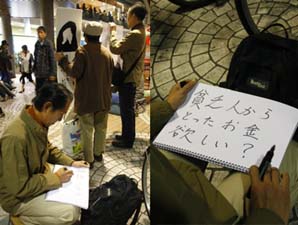 貧乏人から
とったお金
欲しい?